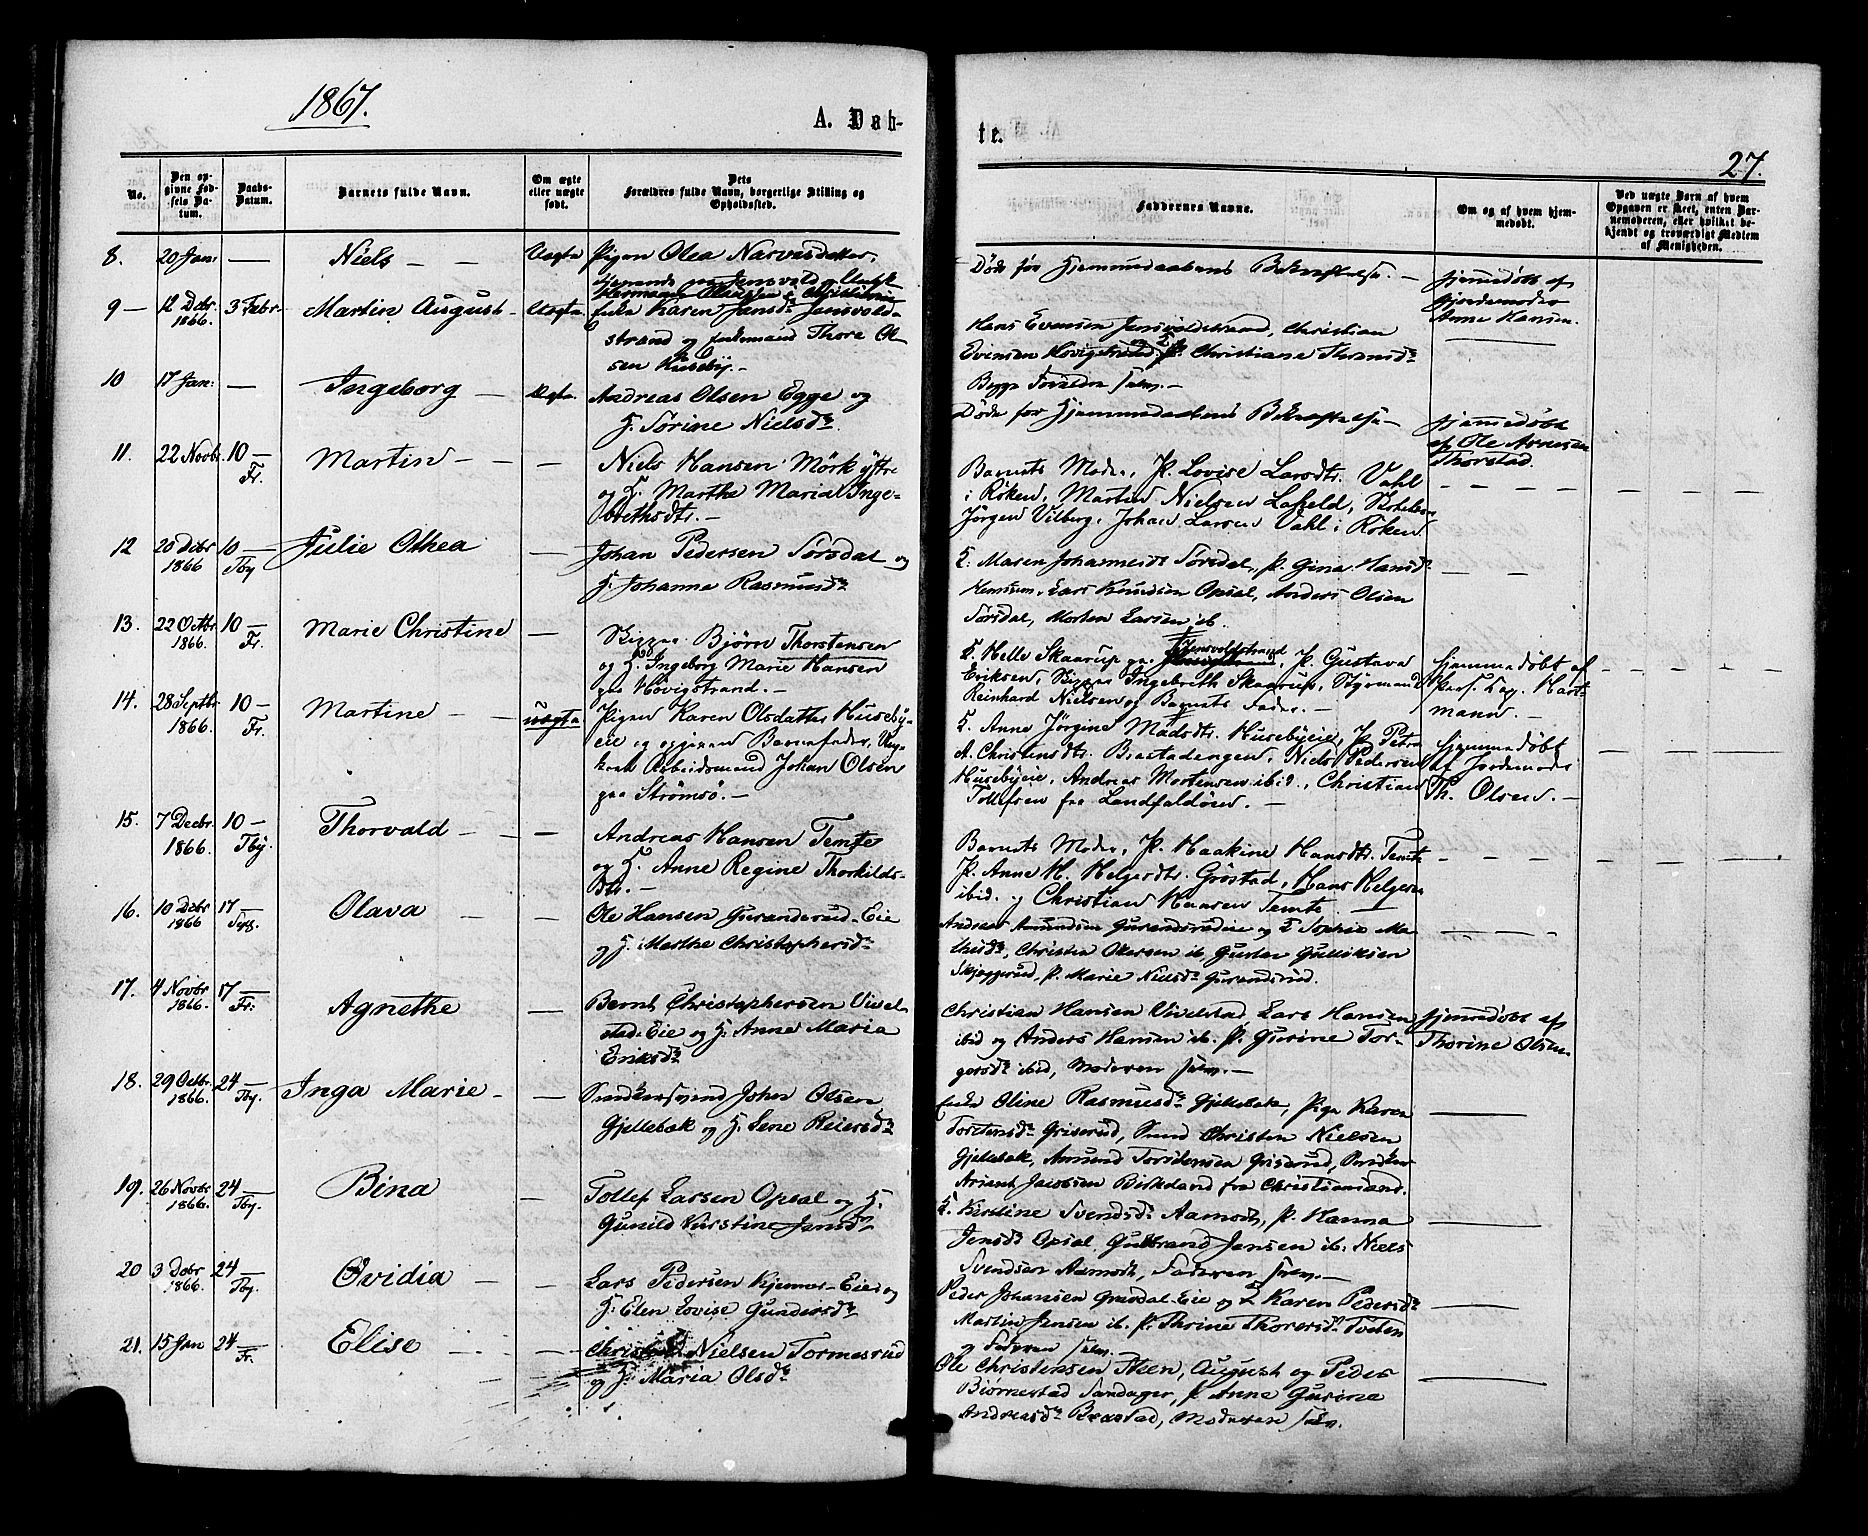 1867.
A. Døb-
te.
27.
No.
Den op-
givne Fød-
sels Da-
tum.
Daabs-
Datum.
Barnets fulde Navn.
Om ægte
eller uægte
født.
Dets
Forældres fulde Navn, borgerlige Stilling og
Opholdssted.
Faddernes Navne.
Om og af hvem hjem-
medøbt.
Ved uægte Børn af hvem
Opgaven er skeet, enten Bar-
nemoderen, eller hvilket be-
kjendt og troværdigt Medlem
af Menigheden.
8. 20 Jan: — Niels — Uægte Pigen Olea Narvesdatter,
Døde før Hjemmedaabens Bekræftelse. — hjemmedøbt af
Gjordemoder
Anne Hansen.
9 — 12 Decbr 1866. 3 Febr. Martin August Uægte Enke Karen Jansdr Jensvold-
strand og Thore Ol-
sen Huseby. —
Hans Evensen Jensvoldstrand, Christian
Evensen Hovigstrand, P. Christiane Thoresdr
Begge Forældre selv. —
10 17 Jan: — Ingeborg — Ægte Andreas Olsen Egge og
H. Sørine Nielsdr
Døde før Hjemmedaabens Bekræftelse — hjemmedøbt
af Ole Arnesen
Thorstad.
11. 22 Novbr. 10 — Fr. Martin — — Niels Hansen Mörk yttre
og H. Marthe Maria Inge-
brethsdtr. —
Barnets Moder, P. Lovise Larsdtr. Vahl
i Röken, Martin Nielsen
Jørgen Vilberg, Johan Larsen Vahl i Röken.
12 20 Decbr 1866 10 — Tby Julie Othea — Johan Pedersen Sørsdal og
H. Johanne Rasmusdr
K. Maren Johannesdt Sørsdal, P. Gina Hansdr
Lars Knudsen Opsal, Anders Olsen
Sørsdal, Morten Larsen ib.
13. 22 Octbr 1866. 10 — Fr. Marie Christine — Skipper Bjørn Thorstensen
og H. Ingeborg Marie Hansen
paa Hövigstrand. —
K. Helle Skaarup paa Jensvoldstrand, P. Gustava
Eriksen, Skipper Ingebrith Skaarup, Styrmand
Reinhard Nielsen og Barnets Fader. —
hjemmedøbt af
Pers. Cap. Hart-
mann. —
14. 28 Septbr 1866. 10 — Fr. Martine — uægte Pigen Karen Olsdatter Huseby-
eie og opgiven Barnefader, Ung-
karl Arbeidsmand Johan Olsen
paa Strømsö. —
K. Anne Jørgine Madsdt. Husebyeie, P. Petra
A. Christensdtr. Brastadengen, Niels Pedersen
Husebyeie, Andreas Mortensen ibid., Christian
Tollefsen fra Landfaldöen. —
hjemmedøbt
af Jordemoder
Th. Olsen. —
15. 7 Decbr. 1866. 10 — Tby. Thorvald — — Andreas Hansen Temte
og H. Anne Regine Thorkilds-
dtr. —
Barnets Moder, P. Haakine Hansdtr. Temte
P. Anne H. Helgesdtr. Gröstad, Hans Helgesen
ibid. og Christian Hansen Temte. —
16. 10 Decbr 1866 17 — Olava — — Ole Hansen Gurandsrud-Eie
og H. Marthe Christophersdr
Andreas Amundsen Gurandsrudeie og K. Sophie Ma-
thisdr, Christian Olsersen ib, Gustav Gulliksen
Skjeggerud, P. Marie Nielsdr Gurandsrud.
17. 4 Novbr 1866. 17 — Fr: Agnethe — Bernt Christophersen Vivel-
stad-Eie og H. Anne Maria
Eriksdr
Christian Hansen Vivelstad Lars Hansen
ibid og Anders Hansen ib. P. Gurine Tor-
gersdr ibid, Moderen selv. —
hjemmedøbt af
Thorine Olsen
18. 29 Octbr. 1866. 24 — Tby. Inga Marie — — Snedkersvend John Olsen
Gjellebæk og H. Lene Reiersdr
Enke Oline Rasmusdr Gjellebæk, Pige Karen
Torstensdr Griserud, Svend Christen Nielsen
Gjellebæk, Amund Torstensen Griserud, Snedker
Ariant Jacobsen Birkeland fra Christiansand.
19. 26 Novbr 1866. 24 — Tby. Bina — Tollef Larsen Opsal og H.
Gunild Kirstine Jensdr
K. Kirstine Svendsdr Aamodt, P. Hanna
Jensdr Opsal, Gulbrand Jansen ib. Niels
Svendsen Aamodt, Faderen selv. —
20 3 Decbr 1866. 24 — Tby. Ovidia — — Lars Pedersen Kjenner-Eie og
H. Elen Lovise Gundersdr
Peder Johansen Grøsdal-Eie og K Karen Pedersdr
Martin Jensen ib. P. Thrine Thoresdr Tveten
og Faderen selv.
21. 15 Jan 24 — Fr. Elise — Christian Nielsen Tormesrud
og H. Maria Olsdr
Ole Christensen Steen, August og Peder
Bjørnestad Sandager, P. Anne Gurine
Andreasdr Brastad, Moderen selv.